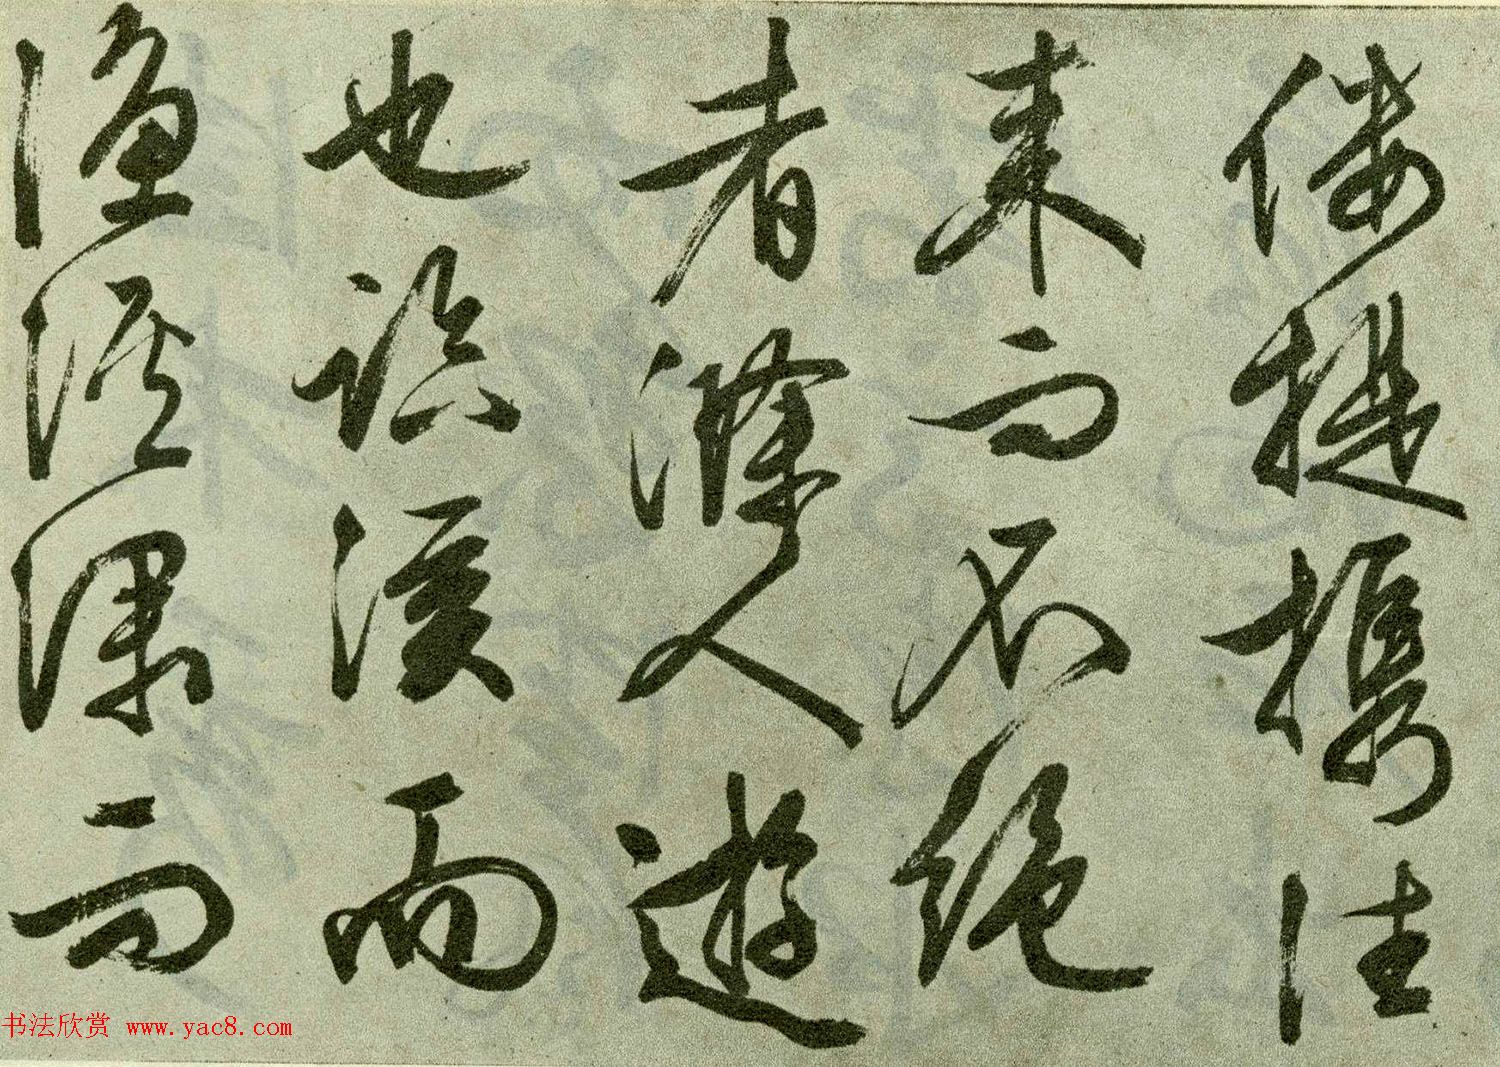 僂提攜往
來而不絕
者滁人遊
也臨溪而
漁溪深而
书法欣赏 www.yac8.com